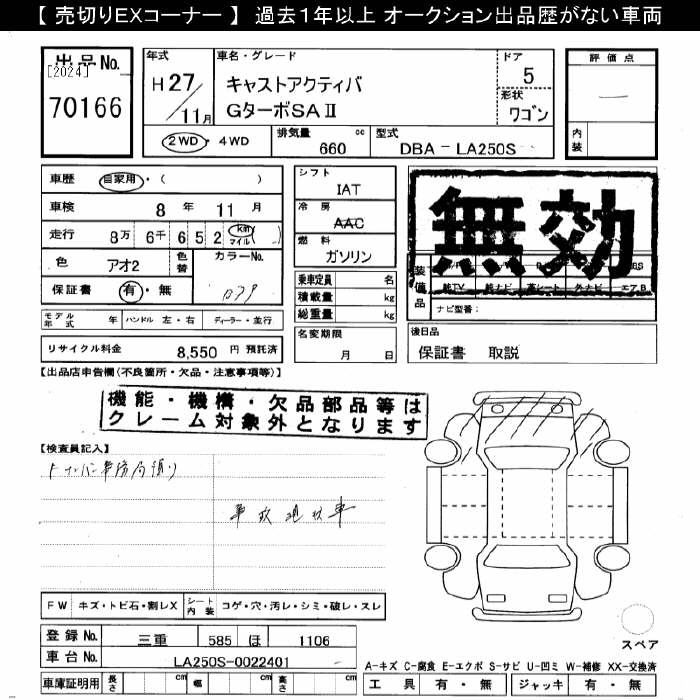 【 売切りEXコーナー 】 過去１年以上 オークション出品歴がない車両
出品No.
[2024]
70166
年式
H27／11月
車名・グレード
キャストアクティバ
GターボSAⅡ
ドア
5
形状
ワゴン
2WD・4WD
排気量 660 cc
型式 DBA－LA250S
評価点
—
内装
車歴 自家用・( )
車検 8年 11月
走行 8万 6千 6 5 2 km マイル ( )
色 アオ2 色替
カラーNo. B79
保証書 有・無
モデル年式 年 ハンドル 左・右 ディーラー・並行
リサイクル料金 8,550 円 預託済
シフト
IAT
冷房
AAC
燃料
ガソリン
乗車定員 名
積載量 kg
総重量 kg
名変期限
月 日
無効
装備品
純TV 純ナビ 革シート 外ナビ エアB
ナビ型番：
後日品
保証書 取説
【出品店申告欄(不良箇所・欠品・注意事項等)】
機能・機構・欠品部品等は
クレーム対象外となります
【検査員記入】
事故現状車
FW キズ・トビ石・割レX シート内装 コゲ・穴・汚レ・シミ・破レ・スレ
登録No. 三重 585 ほ 1106
車台No. LA250S-0022401
車庫証明用 長さ cm 幅 cm 高さ cm
スペア
A-キズ C-腐食 E-エクボ S-サビ U-凹ミ W-補修 XX-交換済
工具 有・無 ジャッキ 有・無